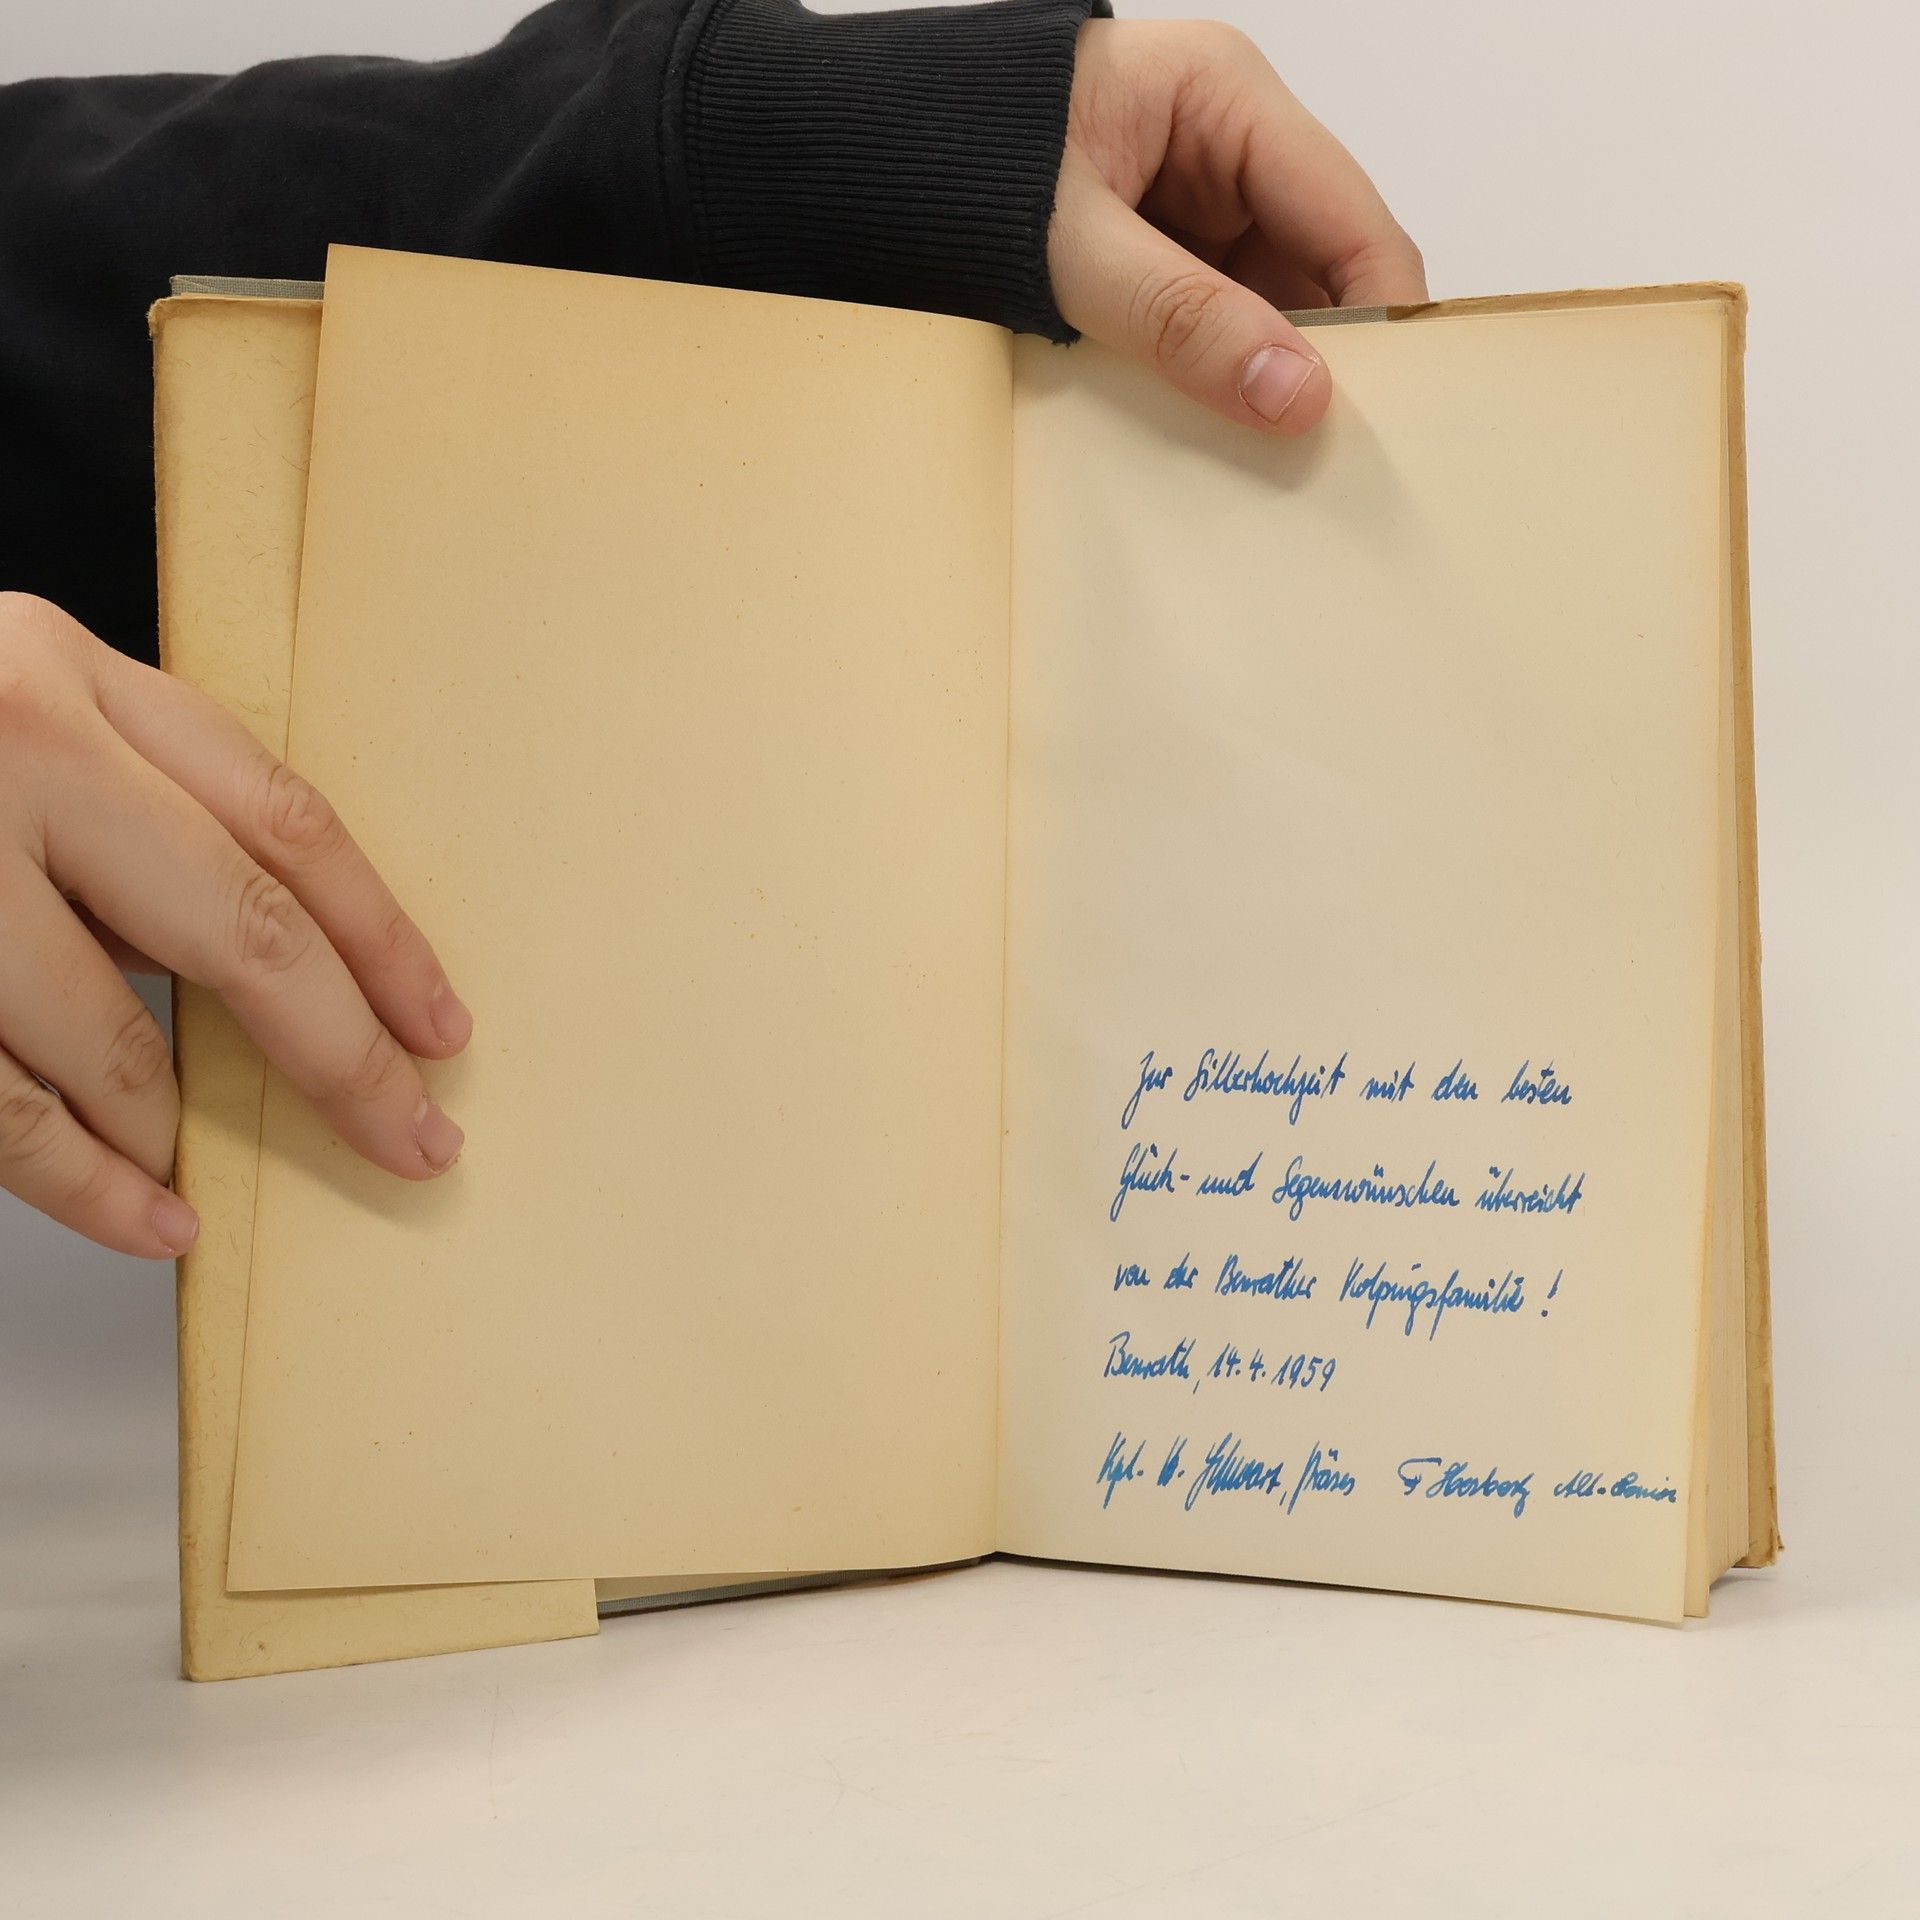 Zur Silberhochzeit mit den besten
Glück- und Segenswünschen überreicht
von der Benrather Kolpingsfamilie !
Benrath, 14.4.1959
Kpl. W. Schwarz, Präses F Herbertz Alt-Senior